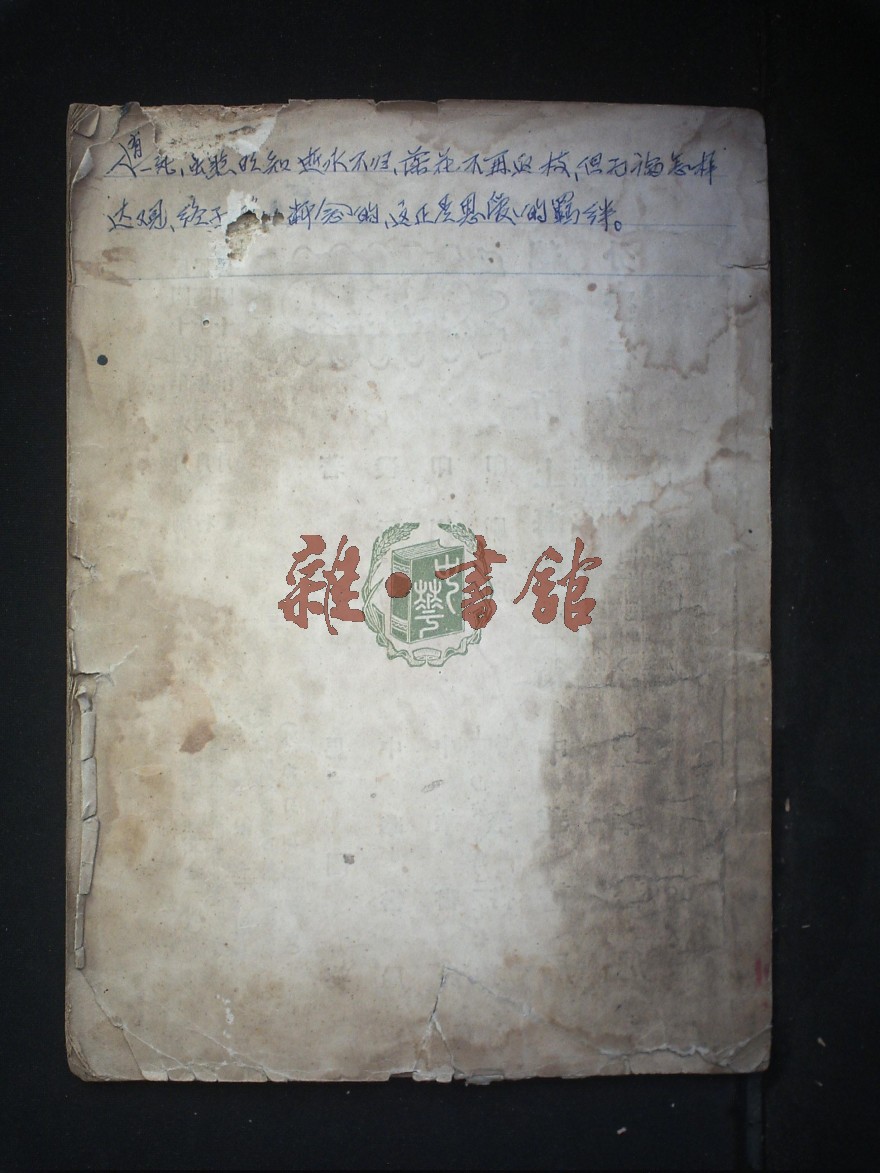 人有一死、虽然明知逝水不归、落花不再返枝、但无论怎样
达观、终于 断念的、这正是恩爱的羁绊。
雜·書館